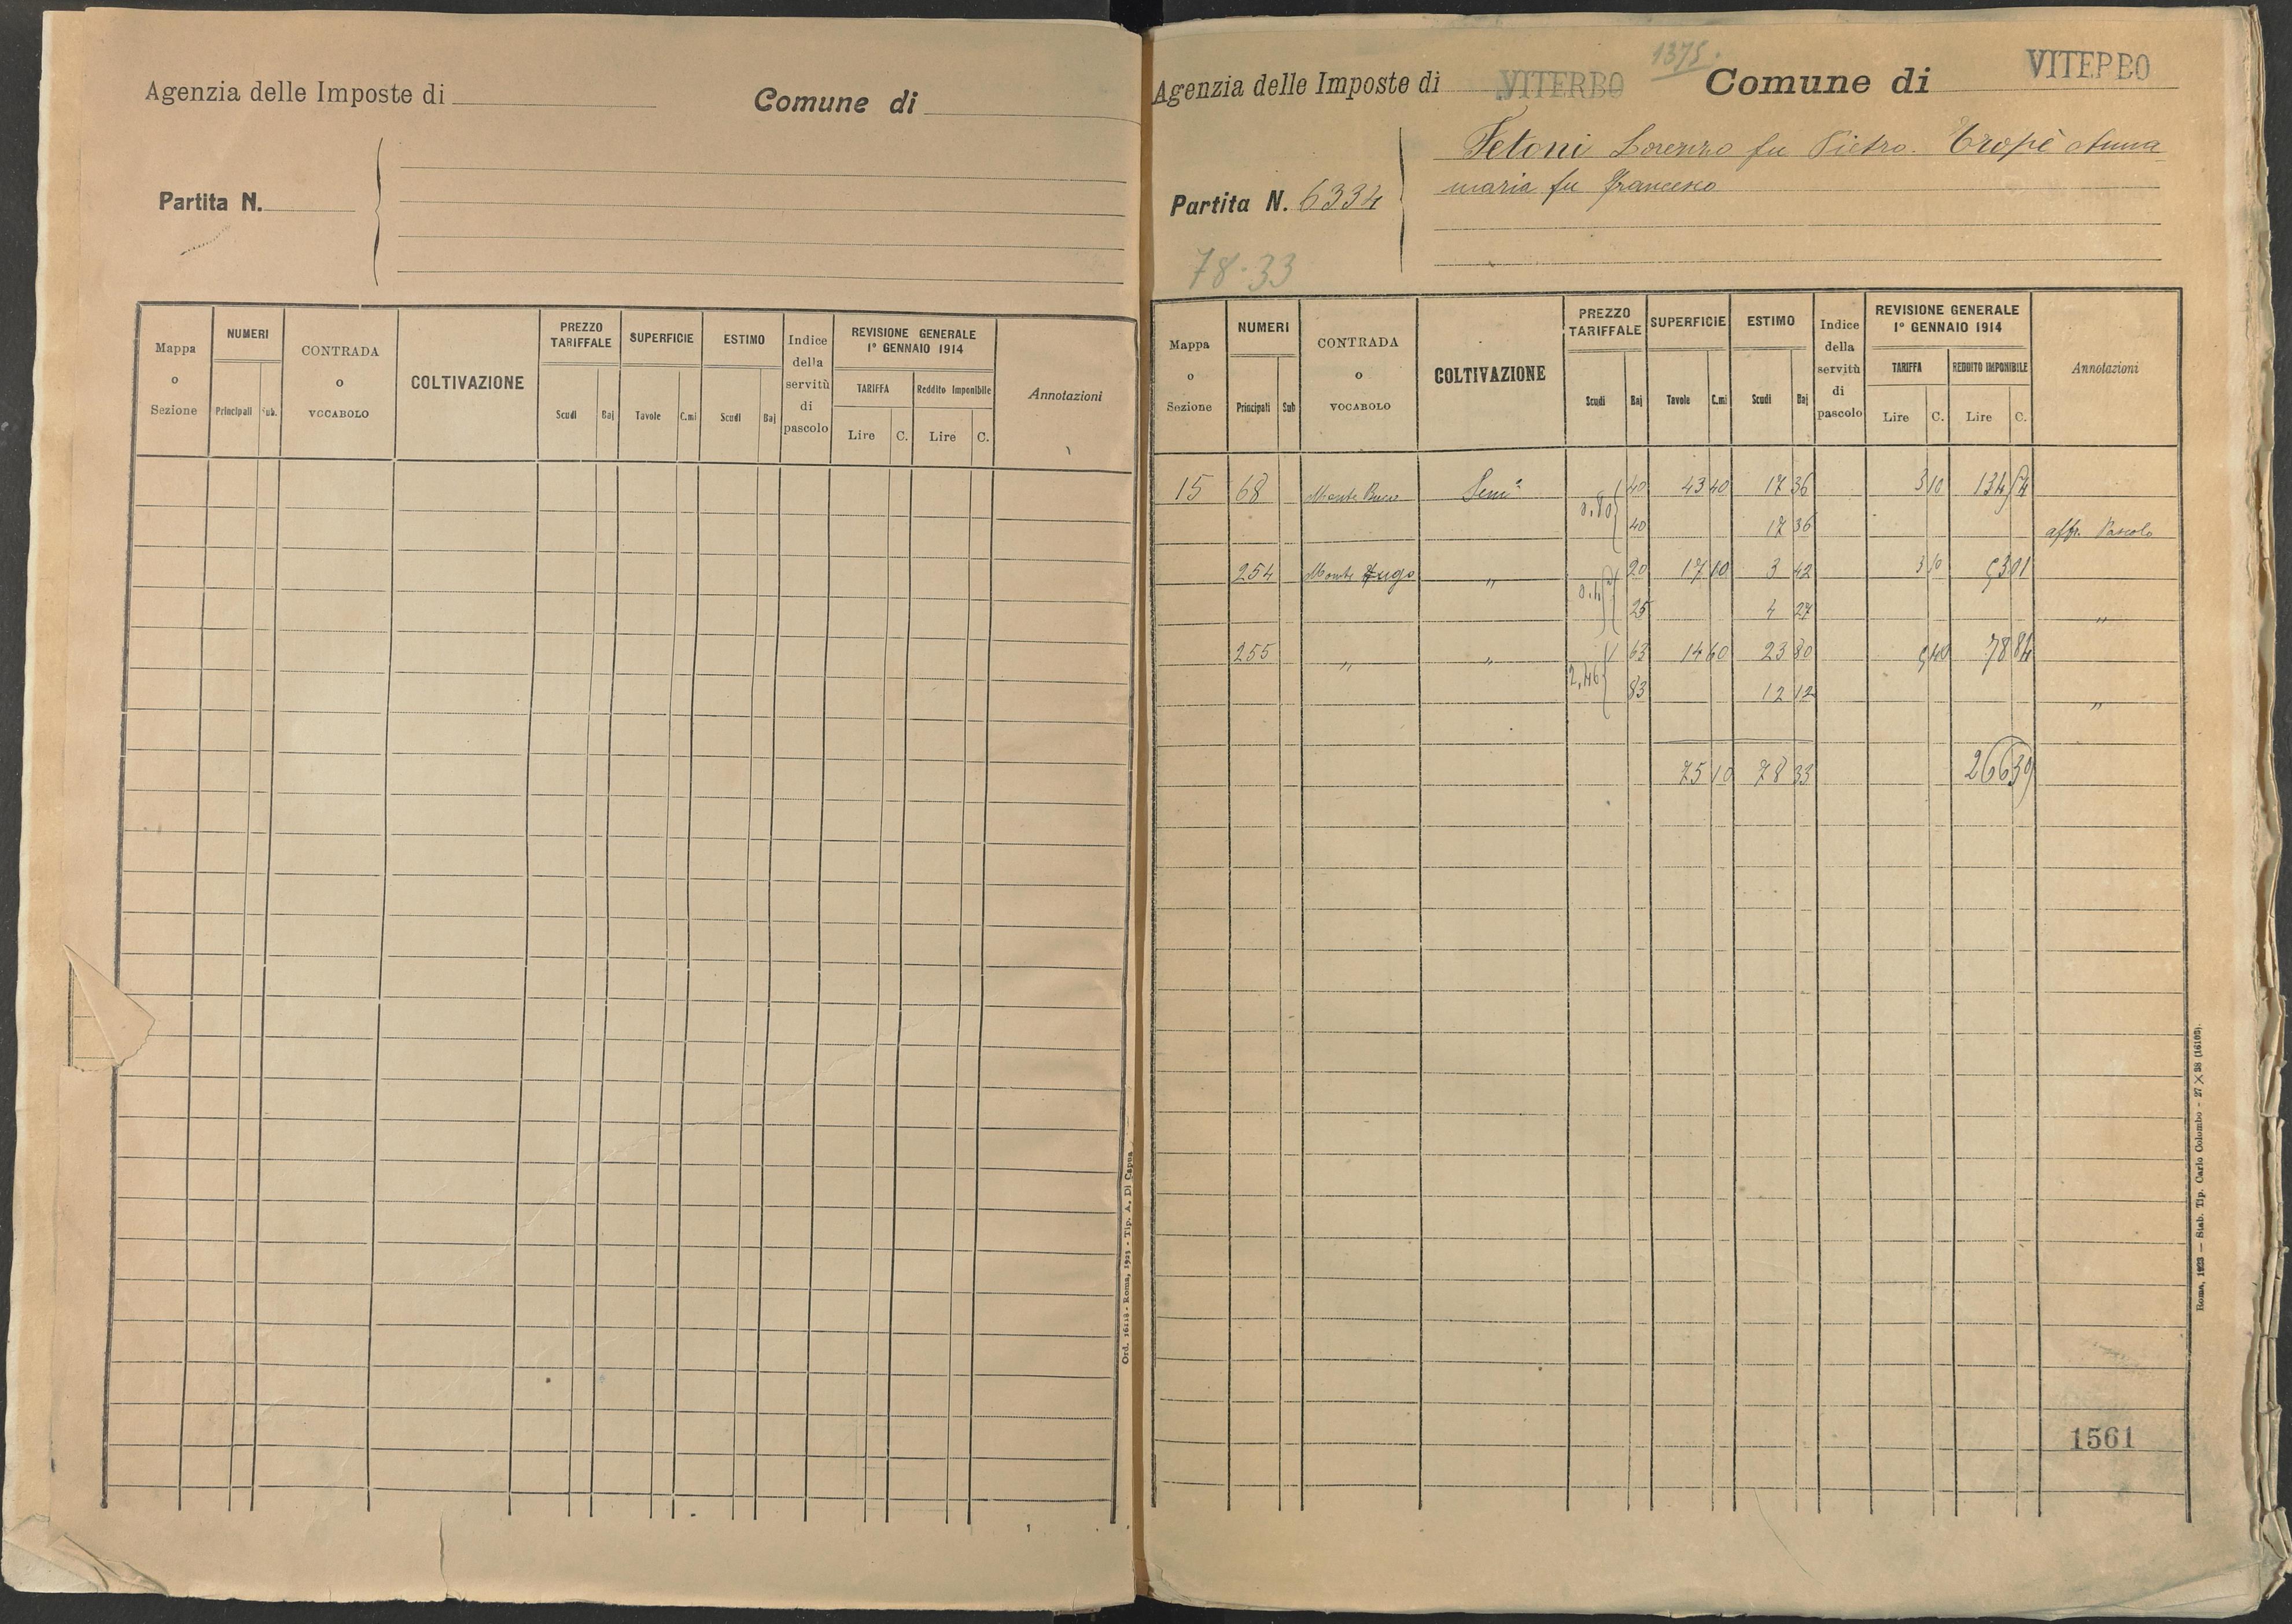 Agenzia delle Imposte di
Comune di
Partita N.
Mappa o Sezione
NUMERI
Principali Sub.
CONTRADA o VOCABOLO
COLTIVAZIONE
PREZZO TARIFFALE
Scudi Baj
SUPERFICIE
Tavole C.mi
ESTIMO
Scudi Baj
Indice della servitù di pascolo
REVISIONE GENERALE 1° GENNAIO 1914
TARIFFA
Lire C.
Reddito Imponibile
Lire C.
Annotazioni
Ord. 16118 - Roma, 1923 - Tip. A. Di Capua
1375.
Agenzia delle Imposte di VITERBO Comune di VITERBO
Partita N. 6334
Fetoni Lorenzo fu Pietro. Tropè Anna
maria fu Francesco
78.33
Mappa o Sezione
NUMERI
Principali Sub
CONTRADA o VOCABOLO
COLTIVAZIONE
PREZZO TARIFFALE
Scudi Baj
SUPERFICIE
Tavole C.mi
ESTIMO
Scudi Baj
Indice della servitù di pascolo
REVISIONE GENERALE 1° GENNAIO 1914
TARIFFA
Lire C.
REDDITO IMPONIBILE
Lire C.
Annotazioni
15 68 Monte Sem.° 40 43 40 17 36 3 10 134 54
0.80 40 17 36 affr. Pascolo
254 Monte Zugo „ 20 17 10 3 42 3 10 53 01
25 4 27 „
255 „ „ 1 63 14 60 23 80 5 40 78 84
2,46 83 12 12 „
75 10 78 33 266 39
1561
Roma, 1923 — Stab. Tip. Carlo Colombo - 27 × 38 (16103).